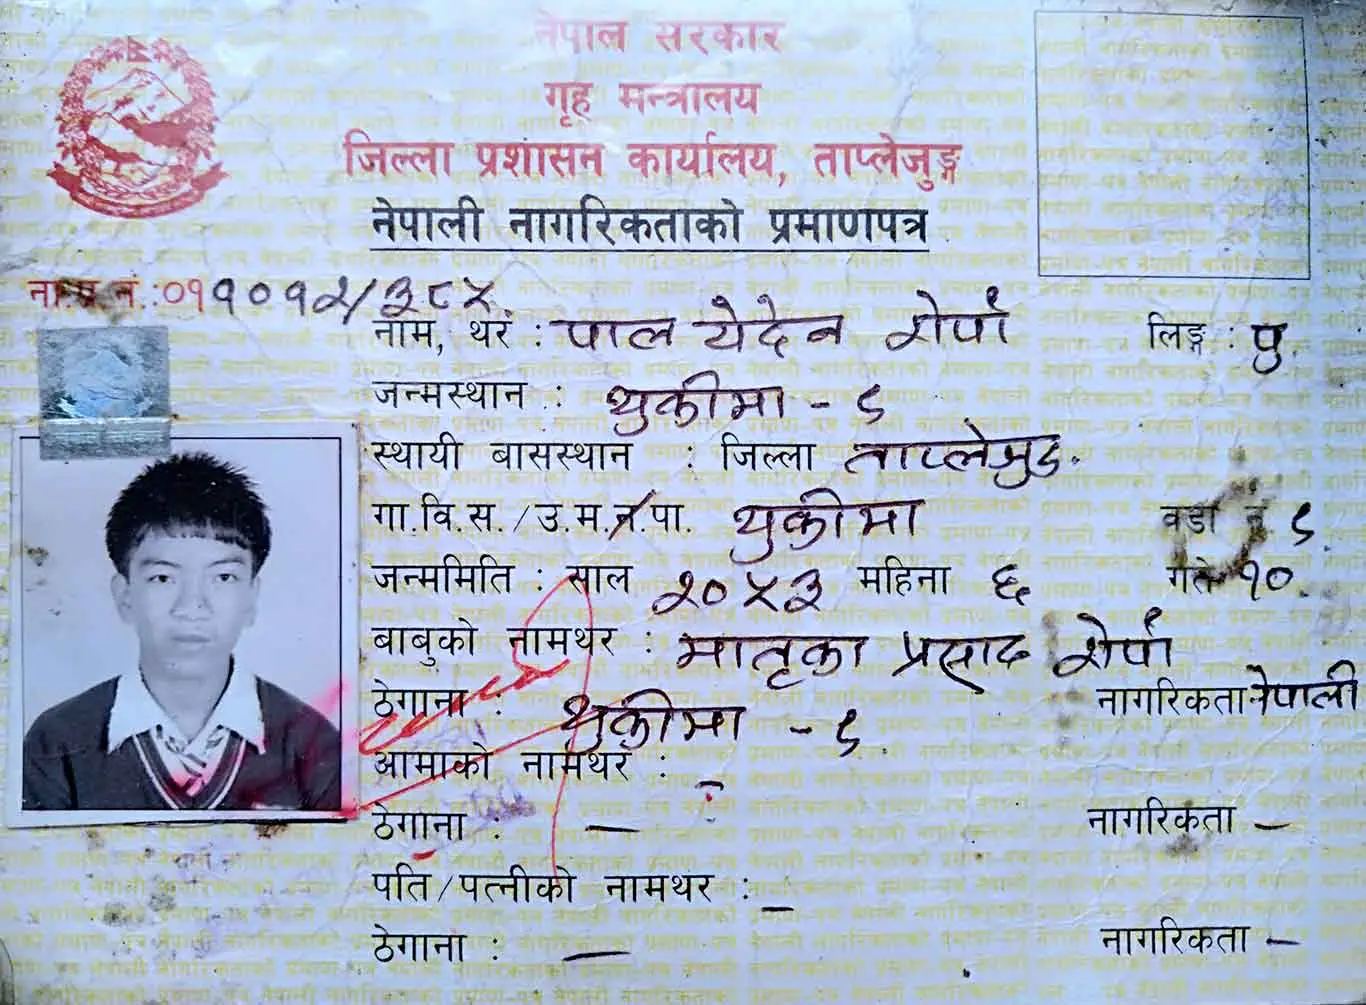 नेपाल सरकार
गृह मन्त्रालय
जिल्ला प्रशासन कार्यालय, ताप्लेजुङ्ग
नेपाली नागरिकताको प्रमाणपत्र
ना.प्र.नं.:०११०१२/३८५
नाम, थर : पाल येदेन शेर्पा लिङ्ग : पु.
जन्मस्थान : थुकीमा - ९
स्थायी बासस्थान : जिल्ला ताप्लेजुङ.
गा.वि.स./उ.म.न.पा. थुकीमा वडा नं ९
जन्ममिति : साल २०५३ महिना ६ गते १०.
बाबुको नामथर : मातृका प्रसाद शेर्पा
ठेगाना : थुकीमा - ९ नागरिकता नेपाली
आमाको नामथर : -
ठेगाना : — नागरिकता —
पति/पत्नीको नामथर : -
ठेगाना : — नागरिकता —